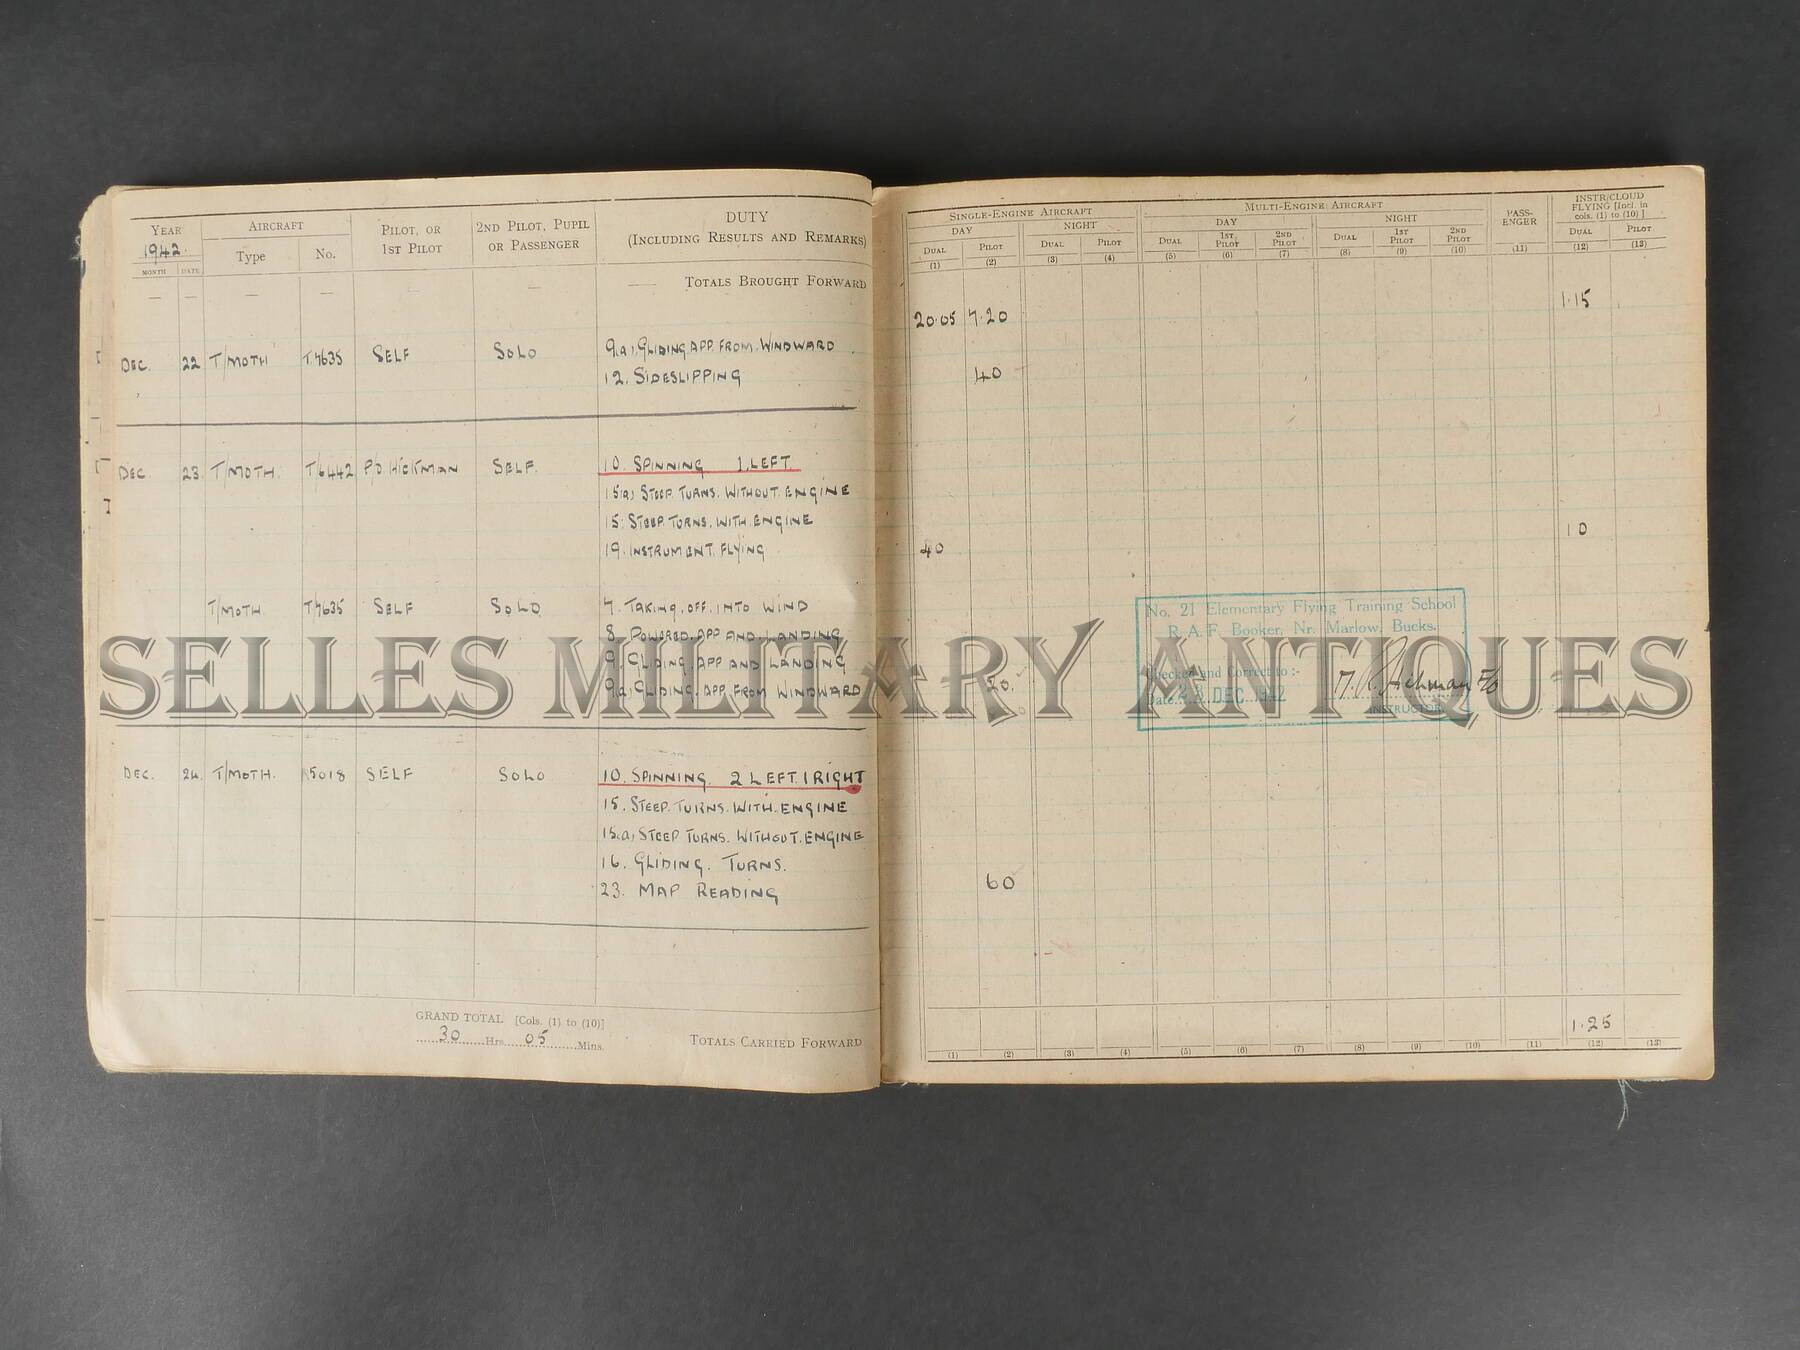 YEAR AIRCRAFT PILOT, OR 1ST PILOT 2ND PILOT, PUPIL OR PASSENGER DUTY (INCLUDING RESULTS AND REMARKS)
1942 Type No.
MONTH DATE
— — — — — — —— TOTALS BROUGHT FORWARD
DEC. 22 T/MOTH T.7635 SELF SOLO 9(a), GLIDING, APP. FROM. WINDWARD
12. SIDESLIPPING
DEC. 23 T/MOTH. T/6442 P/O HICKMAN SELF. 10. SPINNING 1. LEFT.
15(a) STEEP. TURNS. WITHOUT. ENGINE
15. STEEP. TURNS. WITH. ENGINE
19. INSTRUMENT. FLYING
T/MOTH. T7635 SELF SOLO 7. TAKING, OFF, INTO WIND
8. POWERED. APP AND. LANDING
9. GLIDING. APP AND LANDING
9(a), GLIDING, APP. FROM WINDWARD
DEC. 24 T/MOTH. 5018 SELF SOLO 10. SPINNING. 2 LEFT. 1 RIGHT
15. STEEP. TURNS. WITH. ENGINE
15.(a), STEEP TURNS. WITHOUT. ENGINE
16. GLIDING. TURNS.
23. MAP READING
GRAND TOTAL [Cols. (1) to (10)]
30 Hrs. 05 Mins.
TOTALS CARRIED FORWARD
SINGLE-ENGINE AIRCRAFT MULTI-ENGINE AIRCRAFT PASS-ENGER INSTR/CLOUD FLYING [Incl. in cols. (1) to (10)]
DAY NIGHT DAY NIGHT
DUAL PILOT DUAL PILOT DUAL 1ST PILOT 2ND PILOT DUAL 1ST PILOT 2ND PILOT DUAL PILOT
(1) (2) (3) (4) (5) (6) (7) (8) (9) (10) (11) (12) (13)
20.05 7.20 1.15
40
40 10
No. 21 Elementary Flying Training School
R.A.F. Booker, Nr. Marlow, Bucks.
20. Checked and Correct to :-
Date 23 DEC 1942 Hickman F/O
INSTRUCTOR
60
1.25
(1) (2) (3) (4) (5) (6) (7) (8) (9) (10) (11) (12) (13)
SELLES MILITARY ANTIQUES